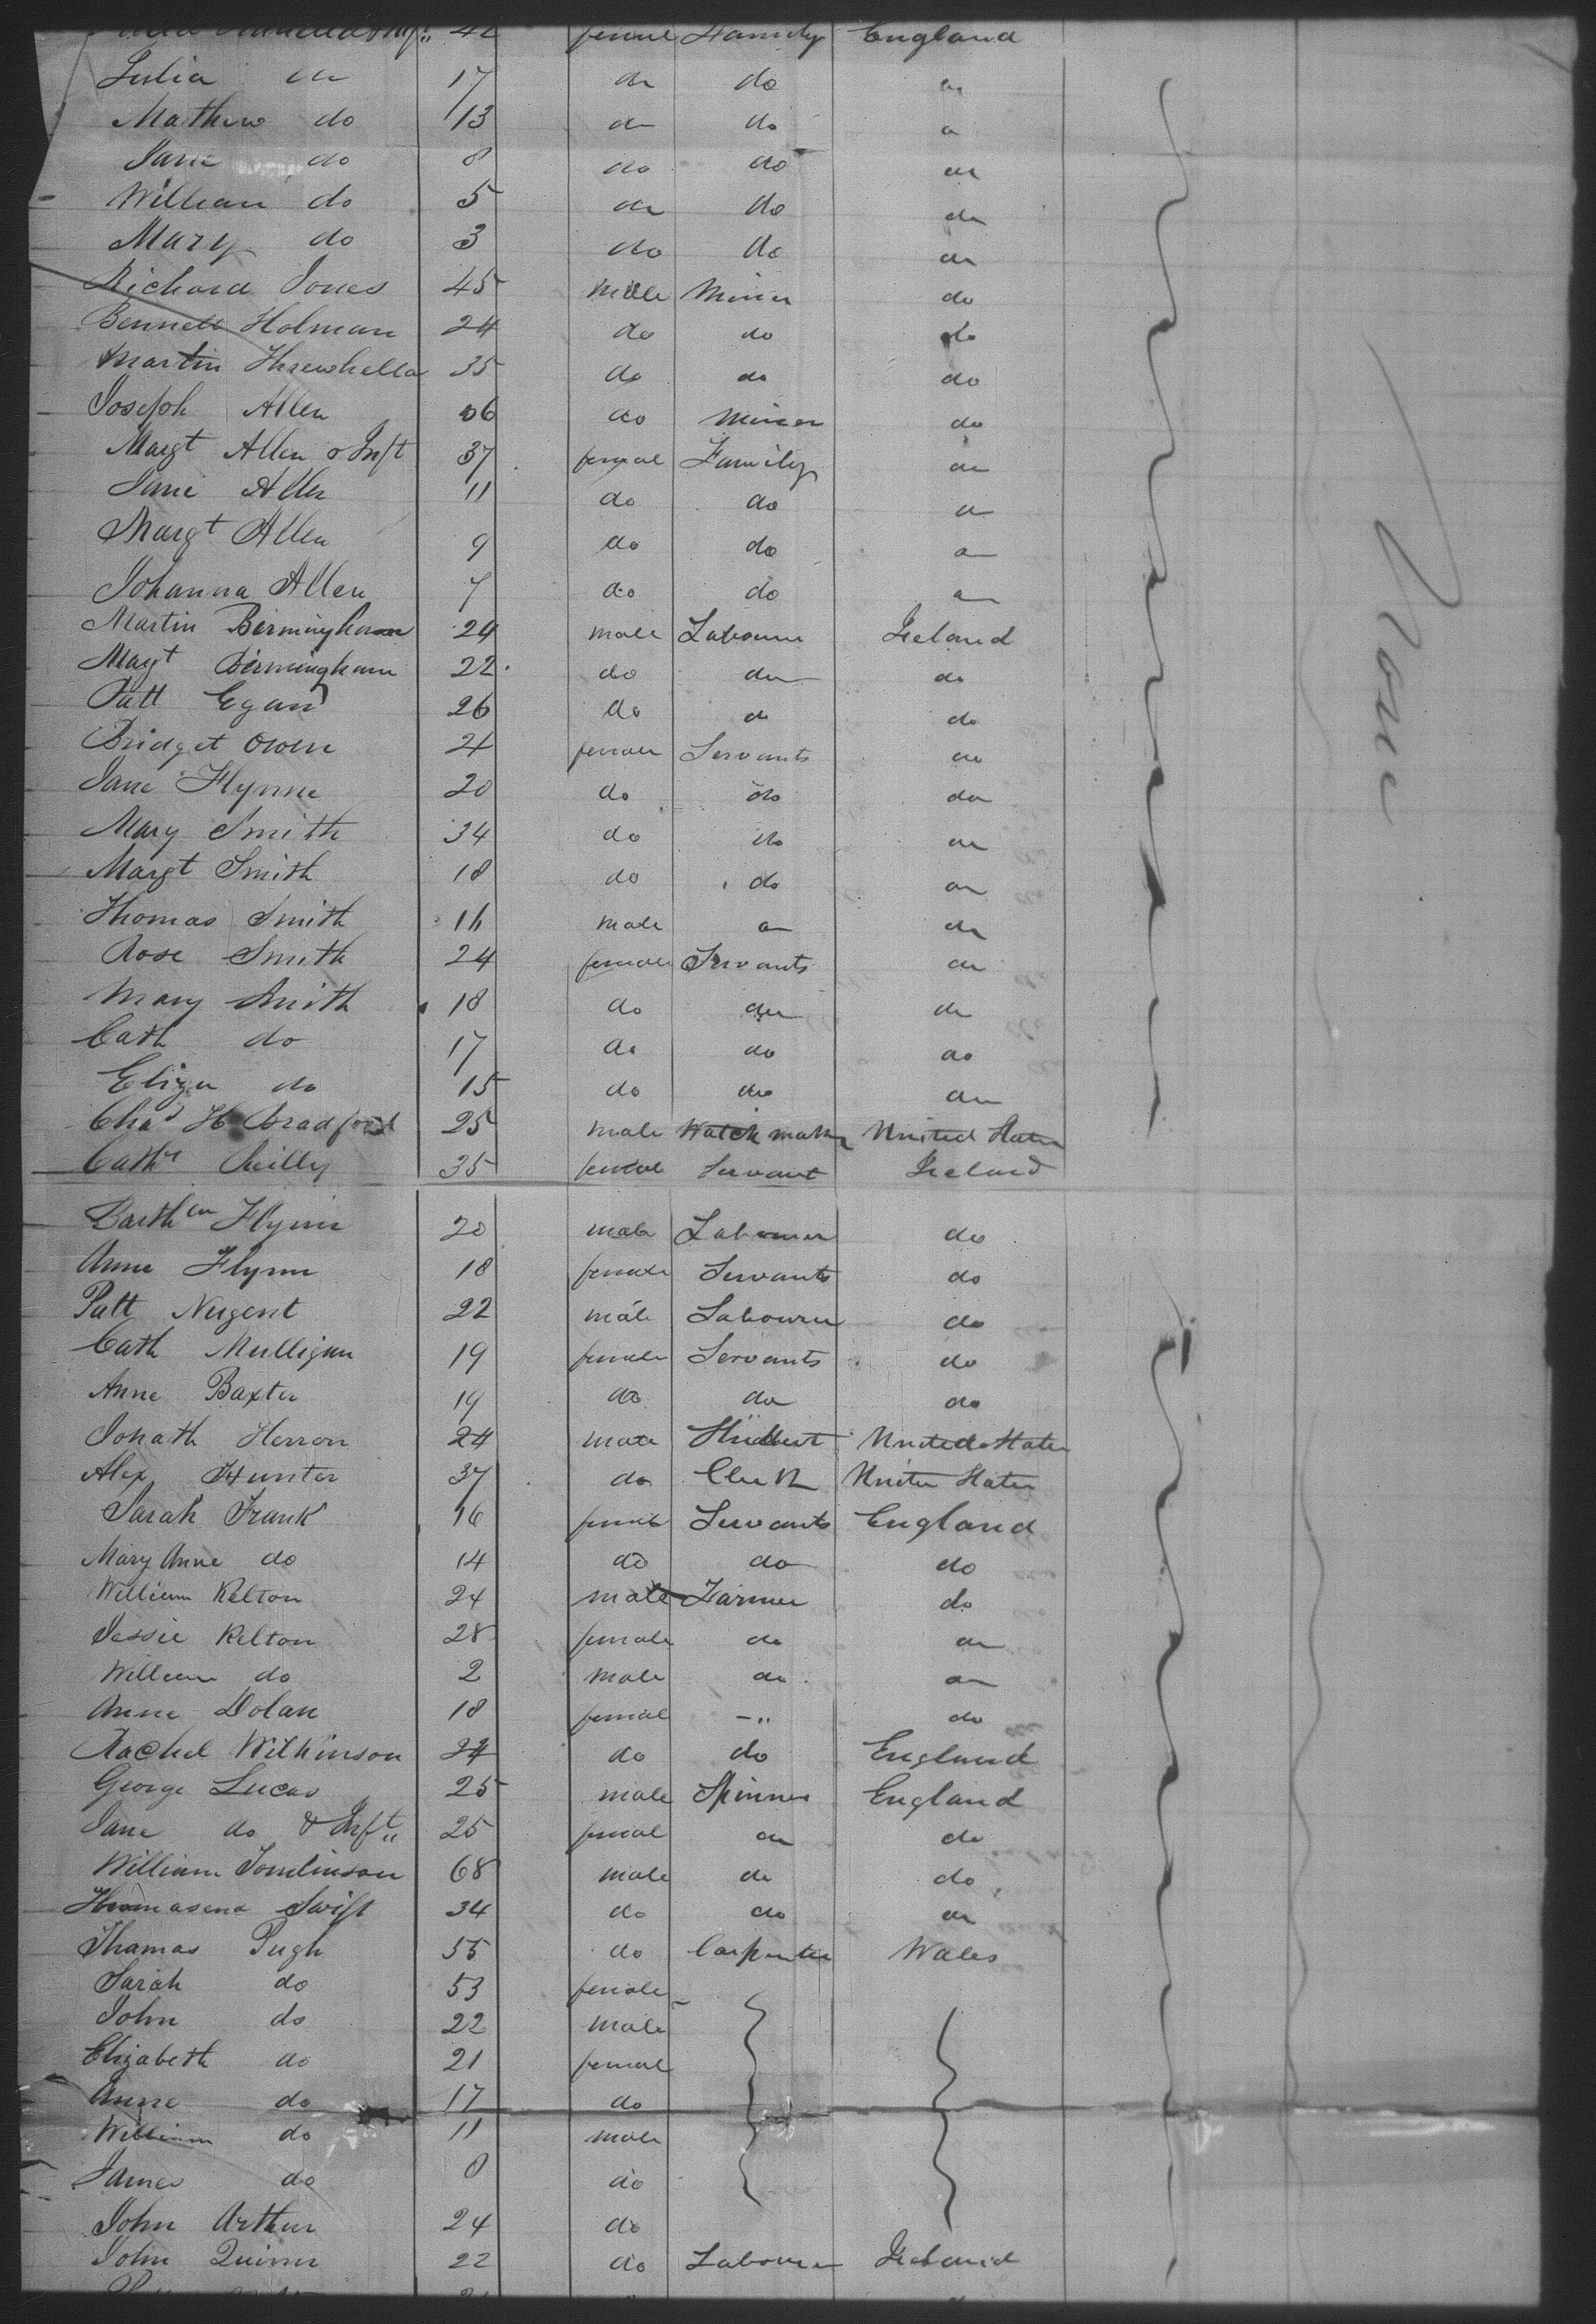 42 female Family England
Julia do 17 do do do
Mathew do 13 do do do
Jane do 8 do do do
William do 5 do do do
Mary do 3 do do do
Richard Jones 45 male Miner do
Bennett Holman 24 do do do
Martin Threwhella 35 do do do
Joseph Allen 36 do Miner do
Margt Allen & Inft 37 female Family do
Jane Allen 11 do do do
Margt Allen 9 do do do
Johanna Allen 7 do do do
Martin Birmingham 24 male Labourer Ireland
Magt Birmingham 22 do do do
Patt Egan 26 do do do
Bridget Owen 21 female Servants do
Jane Flynne 20 do do do
Mary Smith 34 do do do
Margt Smith 18 do do do
Thomas Smith 16 male do do
Rose Smith 24 female Servants do
Mary Smith 18 do do do
Cath do 17 do do do
Eliza do 15 do do do
Chas H Bradford 25 male Watch maker United States
Cathe Reilly 35 female Servant Ireland
None
Barthw Flynn 20 male Labourer do
Anne Flynn 18 female Servants do
Patt Nugent 22 male Labourer do
Cath Mulligan 19 female Servants do
Anne Baxter 19 do do do
Jonath Herron 24 male United States
Alex Hunter 37 do Clerk United States
Sarah Frank 16 female Servants England
Mary Anne do 14 do do do
William Relton 24 male Farmer do
Jessie Relton 28 female do do
William do 2 male do do
Anne Dolan 18 female - " do
Rachel Wilkinson 24 do do England
George Lucas 25 male Spinner England
Jane do & Inft " 25 female do do
William Tomlinson 68 male do do
Thomasena Swift 34 do do do
Thomas Pugh 55 do Carpenter Wales
Sarah do 53 female
John do 22 male
Elizabeth do 21 female
Anne do 17 do
William do 11 male
James do 8 do
John Arthur 24 do
John Quinn 22 do Labourer Ireland